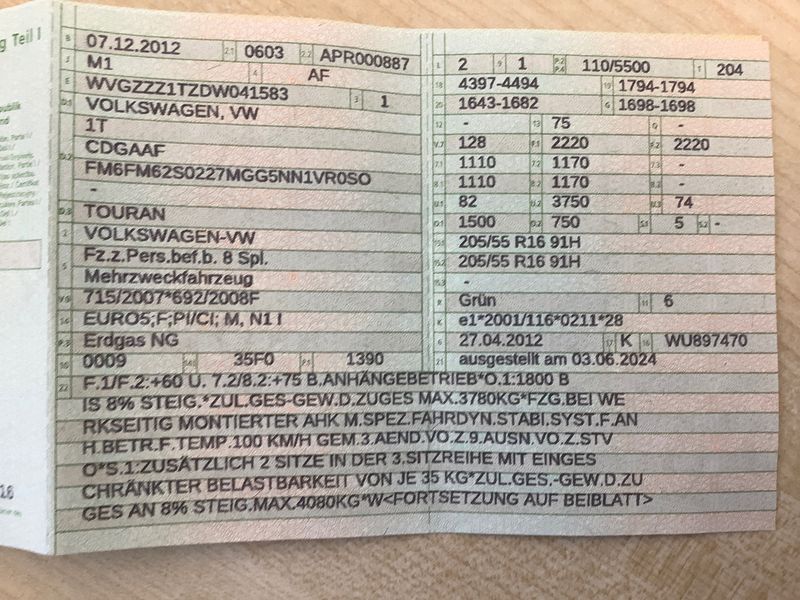 g Teil I
B 07.12.2012 2.1 0603 2.2 APR000887
J M1 4 AF
E WVGZZZ1TZDW041583 3 1
D.1 VOLKSWAGEN, VW
1T
D.2 CDGAAF
FM6FM62S0227MGG5NN1VR0SO
-
D.3 TOURAN
2 VOLKSWAGEN-VW
5 Fz.z.Pers.bef.b. 8 Spl.
Mehrzweckfahrzeug
V.9 715/2007*692/2008F
14 EURO5;F;PI/CI; M, N1 I
P.3 Erdgas NG
10 0009 14.1 35F0 P.1 1390
L 2 9 1 P.2 P.4 110/5500 T 204
18 4397-4494 19 1794-1794
20 1643-1682 G 1698-1698
12 - 13 75 Q -
V.7 128 F.1 2220 F.2 2220
7.1 1110 7.2 1170 7.3 -
8.1 1110 8.2 1170 8.3 -
U.1 82 U.2 3750 U.3 74
O.1 1500 O.2 750 S.1 5 S.2 -
15.1 205/55 R16 91H
15.2 205/55 R16 91H
15.3 -
R Grün 11 6
K e1*2001/116*0211*28
6 27.04.2012 17 K 16 WU897470
21 ausgestellt am 03.06.2024
22 F.1/F.2:+60 U. 7.2/8.2:+75 B.ANHÄNGEBETRIEB*O.1:1800 B
IS 8% STEIG.*ZUL.GES-GEW.D.ZUGES MAX.3780KG*FZG.BEI WE
RKSEITIG MONTIERTER AHK M.SPEZ.FAHRDYN.STABI.SYST.F.AN
H.BETR.F.TEMP.100 KM/H GEM.3.AEND.VO.Z.9.AUSN.VO.Z.STV
O*S.1:ZUSÄTZLICH 2 SITZE IN DER 3.SITZREIHE MIT EINGES
CHRÄNKTER BELASTBARKEIT VON JE 35 KG*ZUL.GES.-GEW.D.ZU
GES AN 8% STEIG.MAX.4080KG*W<FORTSETZUNG AUF BEIBLATT>